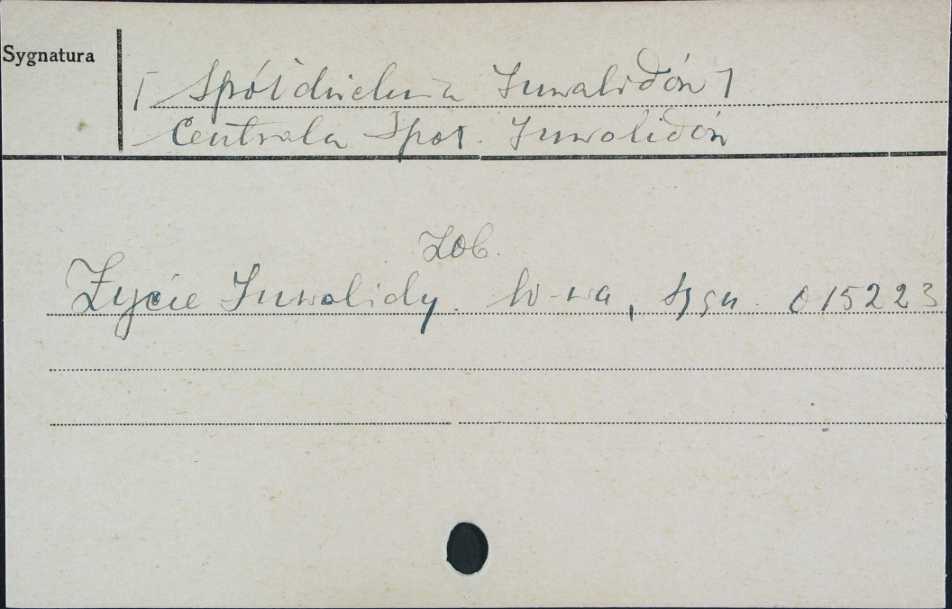 Sygnatura
[Spółdzielnia Inwalidów]
Centrala Spół. Inwalidów
Zob.
Życie Inwalidy. W-wa, sygn. 015223